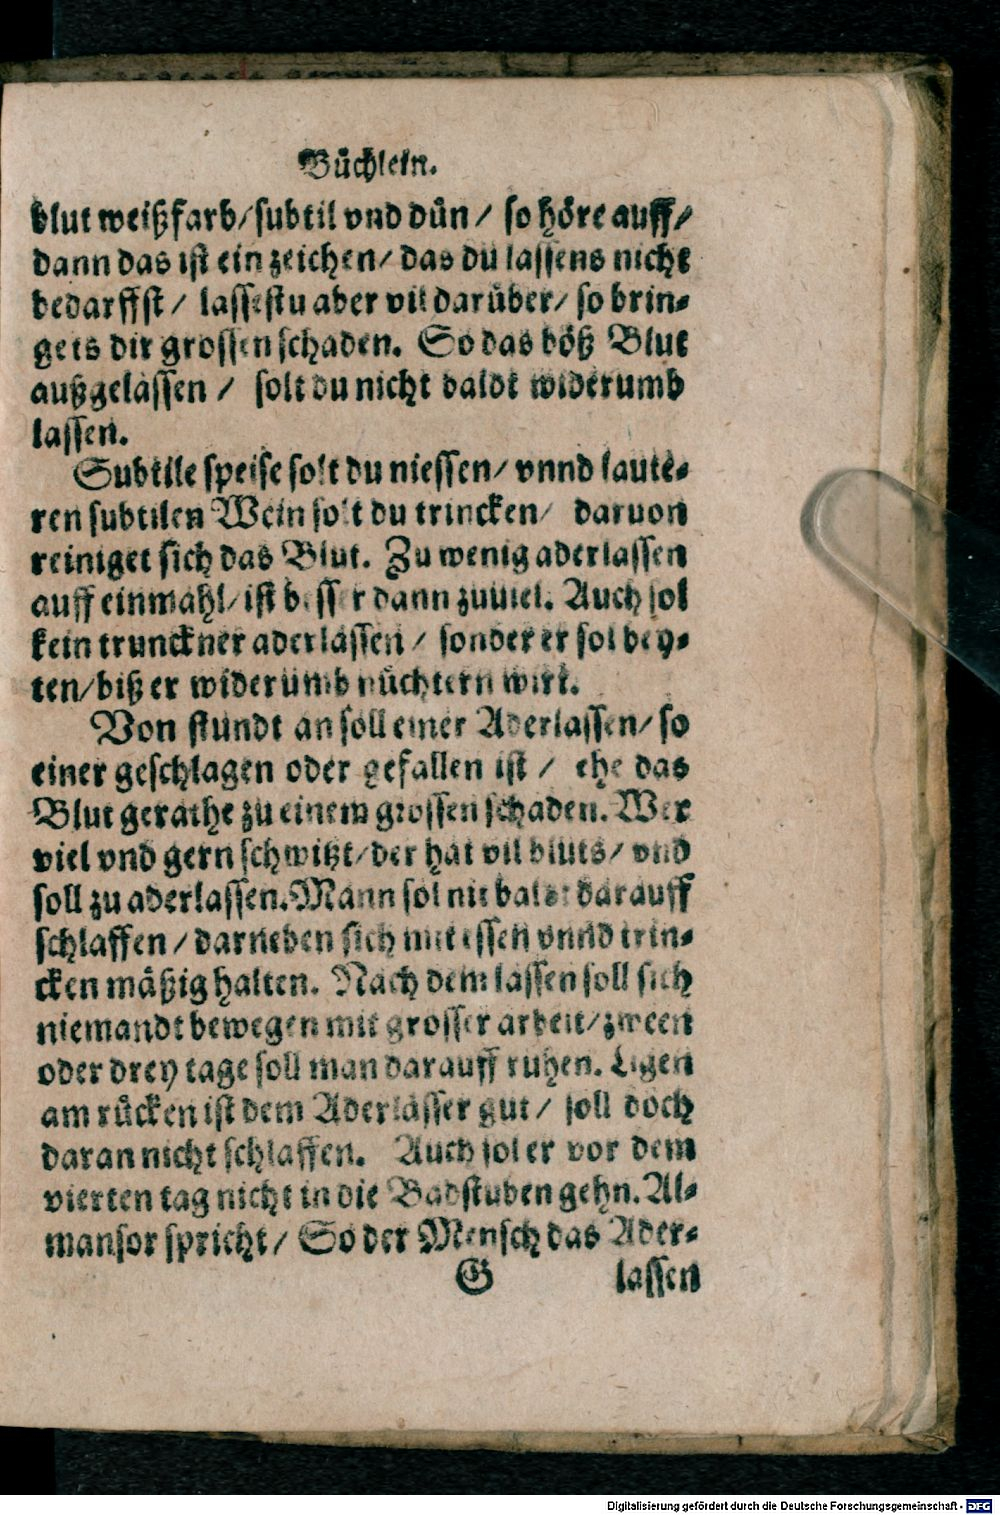 Büchlein.
blut weißfarb/ subtil vnd dün / so höre auff/
dann das ist ein zeichen/ das du lassens nicht
bedarffst / lassestu aber vil darüber/ so brin-
gets dir grossen schaden. So das böß Blut
außgelassen / solt du nicht baldt widerumb
lassen.
Subtile speise solt du niessen/ vnnd laute-
ren subtilen Wein solt du trincken/ daruon
reiniget sich das Blut. Zu wenig aderlassen
auff einmahl/ ist besser dann zuuiel. Auch sol
kein trunckner aderlassen / sonder er sol bey-
ten/ biß er widerumb nüchtern wirt.
Von stundt an soll einer Aderlassen/ so
einer geschlagen oder gefallen ist / ehe das
Blut gerathe zu einem grossen schaden. Wer
viel vnd gern schwitzt/ der hat vil bluts/ vnd
soll zu aderlassen. Mann sol nit baldt darauff
schlaffen / darneben sich mit essen vnnd trin-
cken mäßig halten. Nach dem lassen soll sich
niemandt bewegen mit grosser arbeit/ zween
oder drey tage soll man darauff ruhen. Ligen
am rücken ist dem Aderlasser gut / soll doch
daran nicht schlaffen. Auch sol er vor dem
vierten tag nicht in die Badstuben gehn. Al-
mansor spricht / So der Mensch das Ader-
G lassen
Digitalisierung gefördert durch die Deutsche Forschungsgemeinschaft - DFG